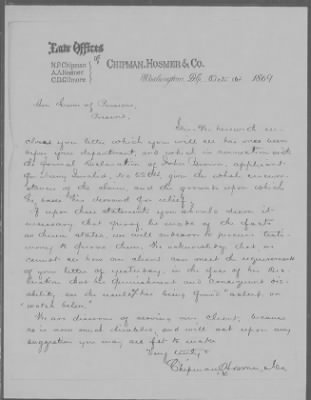 Law Offices
of
N.P. Chipman
A.A. Hosmer
C.D. Gilmore
CHIPMAN, HOSMER & CO.
Washington, D.C. Oct 1869
Hon Comr of Pensions,
Present.
Sir: We herewith en-
close you letter which you will see has once been
upon your department, and which in connection with
the formal declaration of John Brown, applicant
for Navy Invalid, No gives the whole circum-
stances of the claim, and the grounds upon which
he bases his demand for relief.
If upon these statements you should deem it
necessary that proof be made of the facts
as therein stated, we will endeavor to procure testi-
mony to prove them. We acknowledge that we
cannot see how our client can meet the requirements
of your letter of yesterday, in the face of his dec-
laration that his punishment and consequent dis-
ability, are the result of his being found "asleep on
watch below."
We are desirous of serving our client, because
he is now much disabled, and will act upon any
suggestion you may see fit to make.
Very truly,
Chipman, Hosmer, &Co